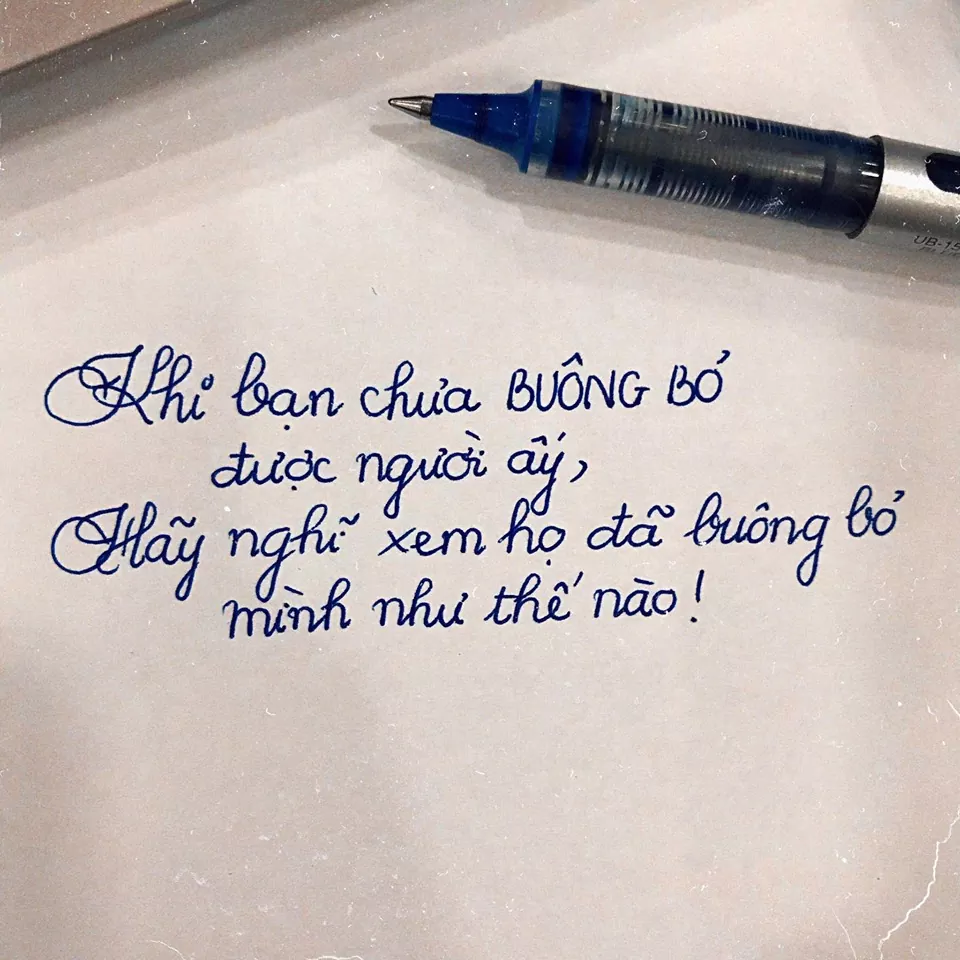 Khi bạn chưa BUÔNG BỎ
được người ấy,
Hãy nghĩ xem họ đã buông bỏ
mình như thế nào!